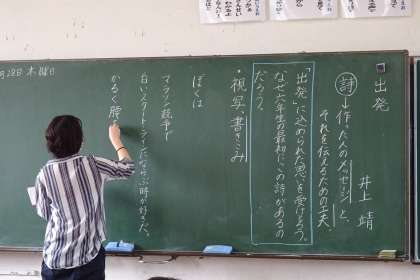 出発
井上 靖
詩→作った人のメッセージと、
それを伝えるための工夫。
「出発」に込められた思いを受けとろう。
なぜ六年生の最初にこの詩があるの
だろう。
・視写、書きこみ
ぼくは
マラソン競争で
白いスタートラインにならぶ時が好きだ。
かるく腰を
月28日 木曜日